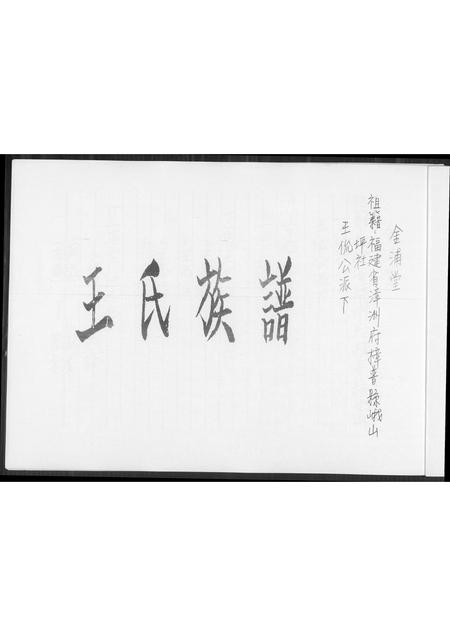 金浦堂
祖籍·福建省漳洲府樟普縣峨山
坪社
王侃公派下
王氏族譜